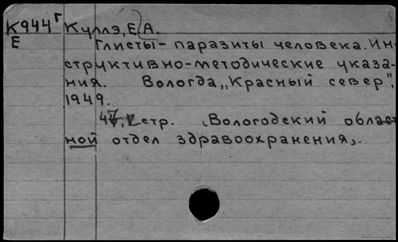 К944г Куллэ, Е.А.
Е
Глисты-паразиты человека. Ин-
структивно-методические указа-
ния. Вологда, "Красный север",
1949.
стр. (Вологодский област
ной отдел здравоохранения).